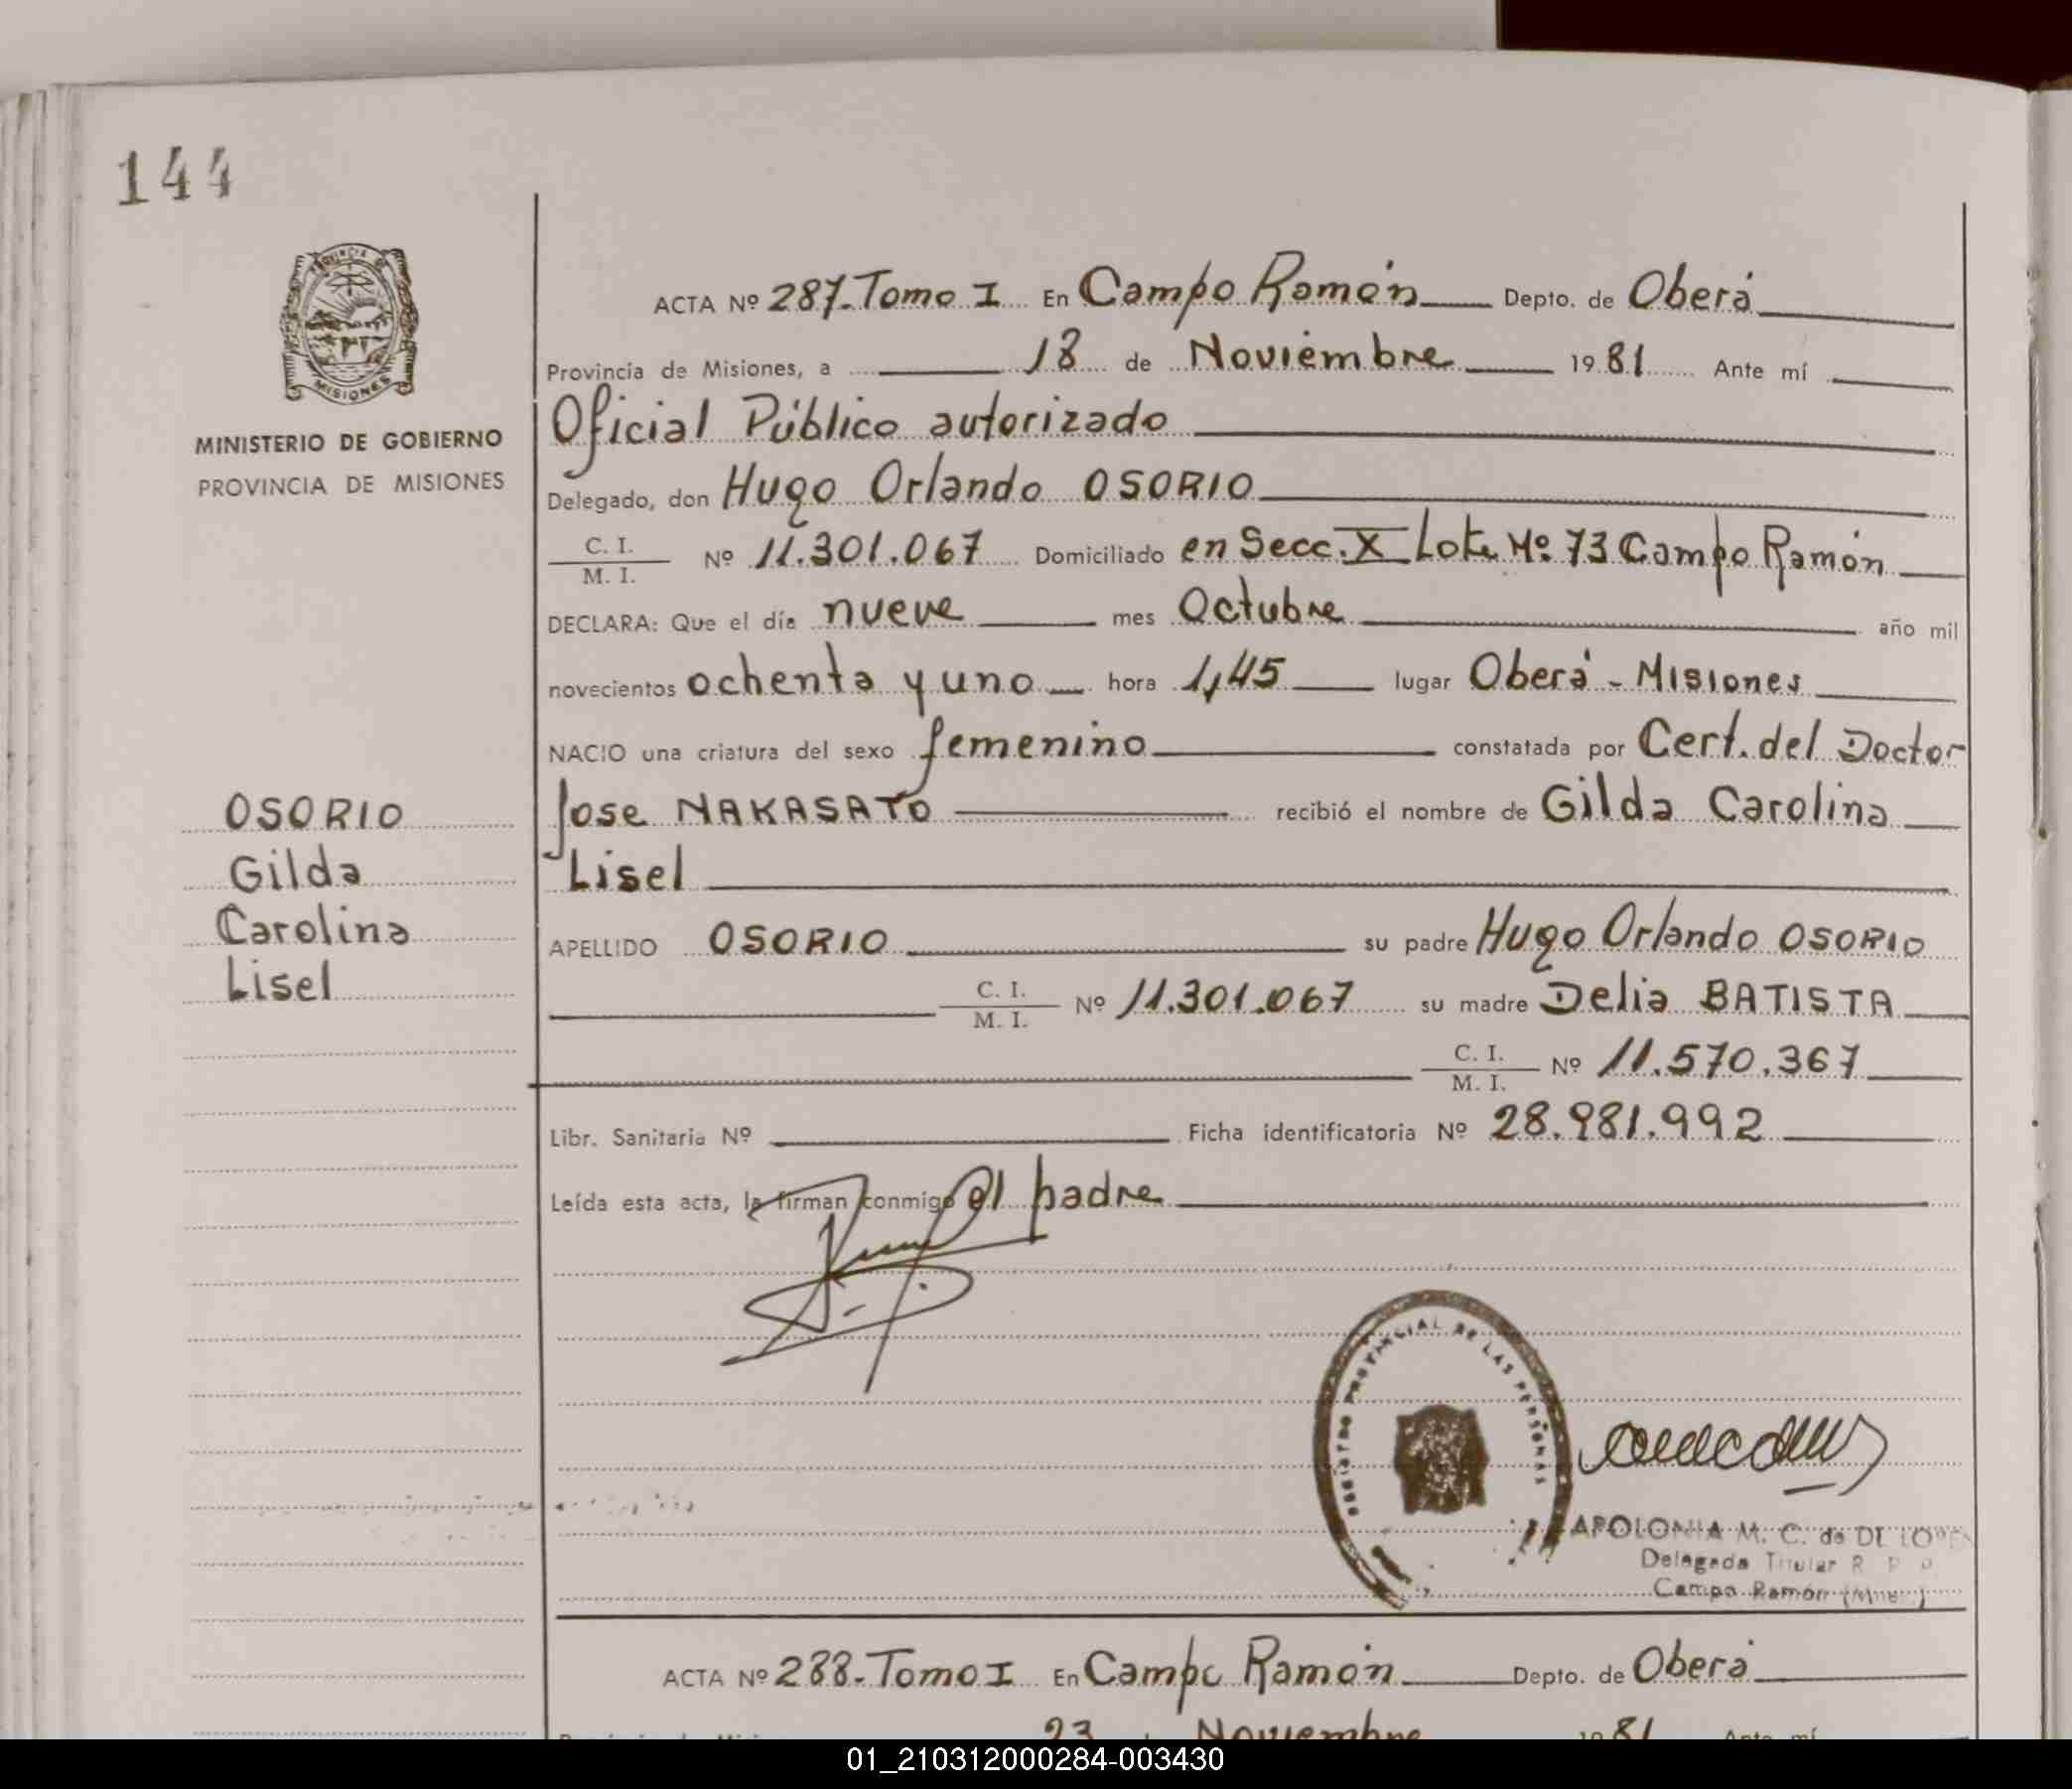 144
PROVINCIA DE
MISIONES
MINISTERIO DE GOBIERNO
PROVINCIA DE MISIONES
OSORIO
Gilda
Carolina
Lisel
ACTA Nº 287-Tomo I En Campo Ramón Depto. de Oberá
Provincia de Misiones, a 18 de Noviembre 1981 Ante mí
Oficial Público autorizado
Delegado, don Hugo Orlando OSORIO
C. I.
M. I. Nº 11.301.067 Domiciliado en Secc. X Lote Nº 73 Campo Ramón
DECLARA: Que el día nueve mes Octubre año mil
novecientos ochenta y uno hora 1,45 lugar Oberá - Misiones
NACIO una criatura del sexo femenino constatada por Cert. del Doctor
Jose NAKASATO recibió el nombre de Gilda Carolina
Lisel
APELLIDO OSORIO su padre Hugo Orlando OSORIO
C. I.
M. I. Nº 11.301.067 su madre Delia BATISTA
C. I.
M. I. Nº 11.570.367
Libr. Sanitaria Nº Ficha identificatoria Nº 28.981.992
Leída esta acta, la firman conmigo el padre
REGISTRO PROVINCIAL DE LAS PERSONAS
APOLONIA M. C. de
Delegada Titular R. P. P.
Campo Ramón
ACTA Nº 288-Tomo I En Campo Ramón Depto. de Oberá
23 Noviembre 1981 Ante mí
01_210312000284-003430